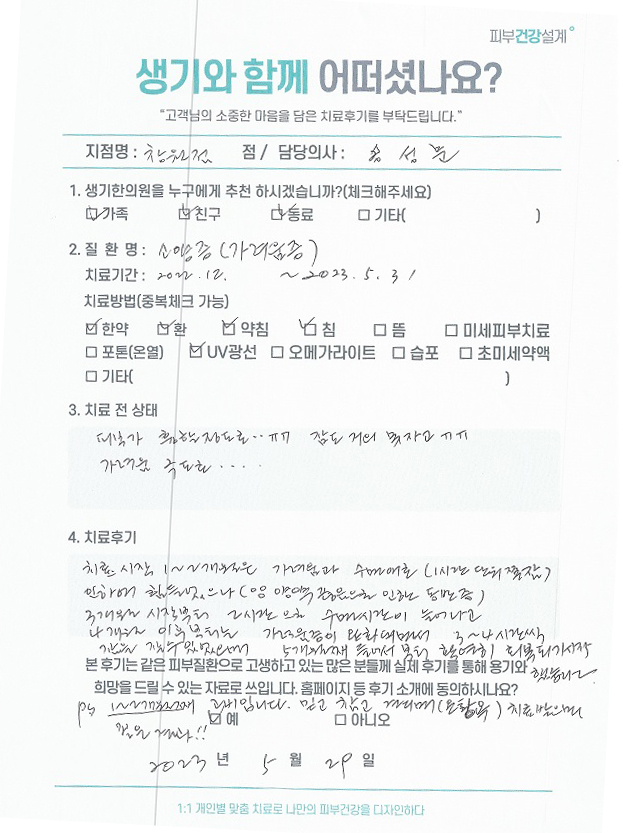 피부건강설계°
생기와 함께 어떠셨나요?
"고객님의 소중한 마음을 담은 치료후기를 부탁드립니다."
지점명 : 창원점 점 / 담당의사 : 문
1. 생기한의원을 누구에게 추천 하시겠습니까?(체크해주세요)
☑가족 ☑친구 ☑동료 □기타( )
2. 질 환 명 : 소양증 (가려움증)
치료기간 : 2022. 12. ~ 2023. 5. 31
치료방법(중복체크 가능)
☑한약 ☑환 ☑약침 ☑침 □뜸 □미세피부치료
□포톤(온열) ☑UV광선 □오메가라이트 □습포 □초미세약액
□기타( )
3. 치료 전 상태
정도로.. ㅠㅠ 잠도 거의 못자고 ㅠㅠ
가려움 극도로 ....
4. 치료후기
치료 시작 1~2개월은 가려움과 수면애로 (1시간 단위 쪽잠)
인하여 힘들었으나 (암 인한 동반증)
3개월 시작부터 2시간 으로 수면시간이 늘어나고
4개월 이후부터는 가려움증이 완화되면서 3~4시간씩
잠을 잘수 있었으며 5개월째 들어서 부터 확연히 회복되기시작
본 후기는 같은 피부질환으로 고생하고 있는 많은 분들께 실제 후기를 통해 용기와 했습니다.
희망을 드릴 수 있는 자료로 쓰입니다. 홈페이지 등 후기 소개에 동의하시나요?
ps, 1~2개월째 고비입니다. 믿고 참고 치료 받으면
좋은 결과!!
☑예 □아니오
2023 년 5 월 29 일
1:1 개인별 맞춤 치료로 나만의 피부건강을 디자인하다